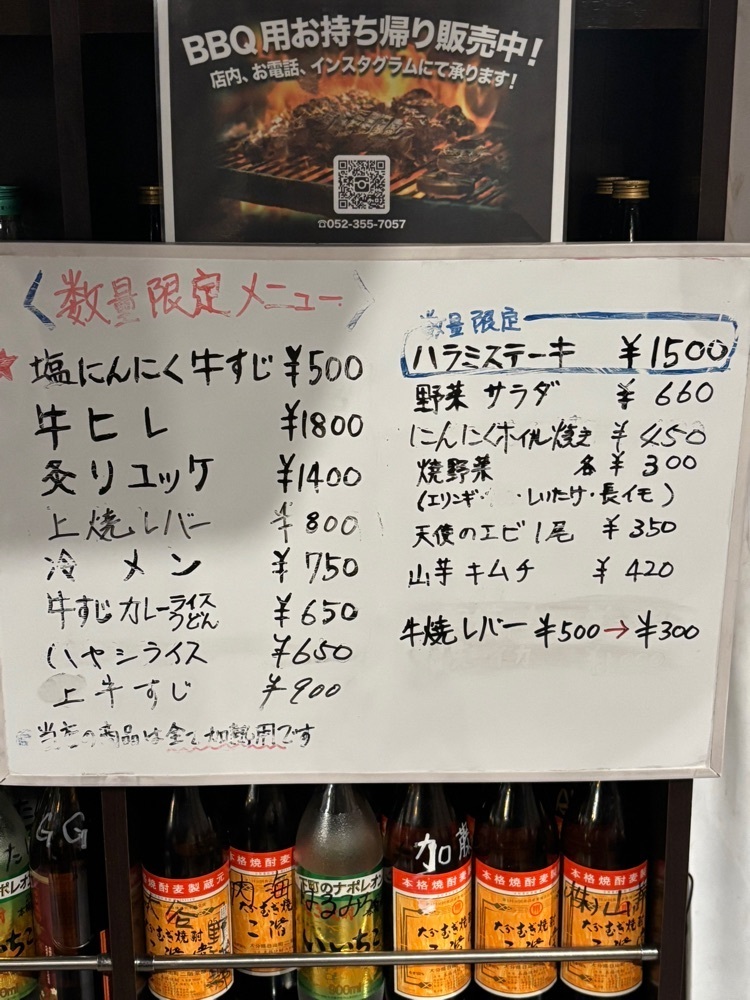 BBQ用お持ち帰り販売中！
店内、お電話、インスタグラムにて承ります！
☎052-355-7057
〈数量限定メニュー〉
塩にんにく牛すじ ¥500
牛ヒレ ¥1800
炙りユッケ ¥1400
上焼レバー ¥800
冷メン ¥750
牛すじカレーライス
うどん ¥650
ハヤシライス ¥650
上牛すじ ¥900
当店の商品は全て加熱用です
数量限定
ハラミステーキ ¥1500
野菜サラダ ¥660
にんにくホイル焼き ¥450
焼野菜 各¥300
(エリンギ・ ・しいたけ・長イモ)
天使のエビ1尾 ¥350
山芋キムチ ¥420
牛焼レバー ¥500→¥300
GG
本格焼酎麦製蔵元
本格焼酎麦
大分むぎ焼酎
二階
下町のナポレオン
いいちこ
加
本格焼酎麦
大分むぎ焼酎
二階
本格焼酎麦
大分むぎ焼酎
二階
本格焼酎麦
(株)山
大分むぎ焼酎
二階